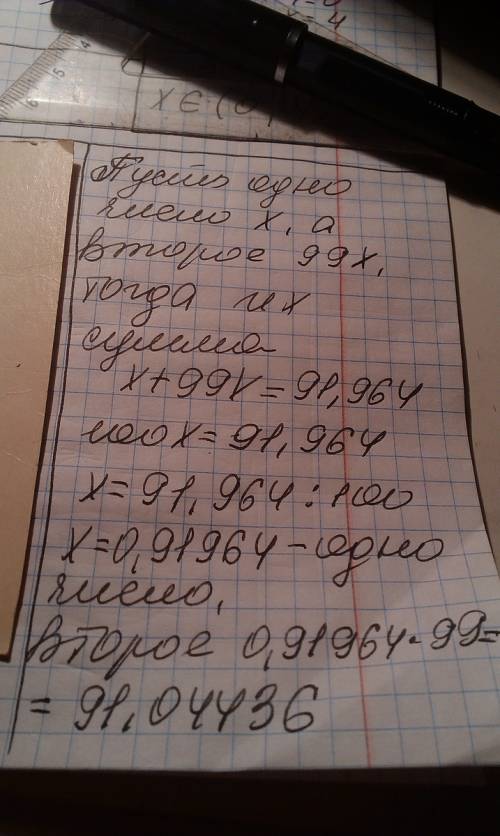 =4
X ∈ (0
Пусть одно
число x, а
второе 99x,
тогда их
сумма
x+99x=91,964
100x=91,964
x=91,964:100
x=0,91964-одно
число,
второе 0,91964·99=
=91,04436